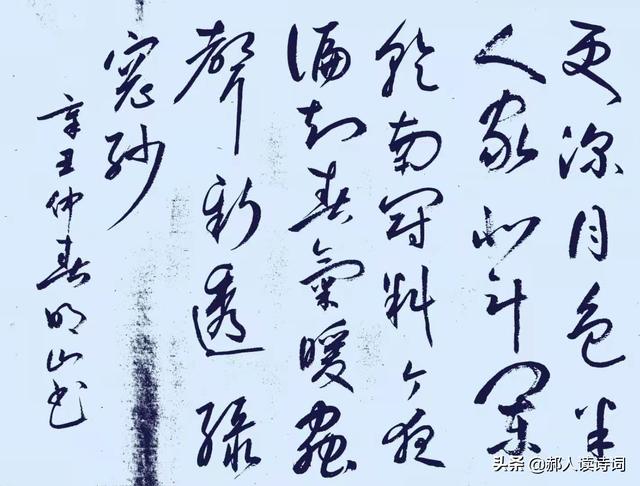 更深月色半
人家北斗闌
乾南斗斜今夜
偏知春氣暖蟲
聲新透綠
窓紗
辛丑仲春明山书
头条 @郝人读诗词